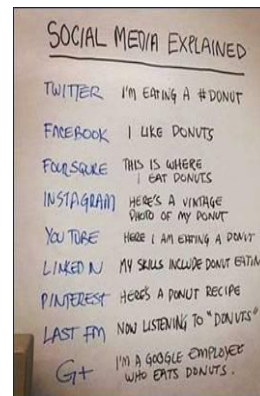 SOCIAL MEDIA EXPLAINED
TWITTER I'M EATING A #DONUT
FACEBOOK I LIKE DONUTS
FOURSQURE THIS IS WHERE
I EAT DONUTS
INSTAGRAM HERE'S A VINTAGE
PHOTO OF MY DONUT
YOU TUBE HERE I AM EATING A DONUT
LINKED IN MY SKILLS INCLUDE DONUT EATIN
PINTEREST HERE'S A DONUT RECIPE
LAST FM NOW LISTENING TO "DONUTS"
G+ I'M A GOOGLE EMPLOYEE
WHO EATS DONUTS.